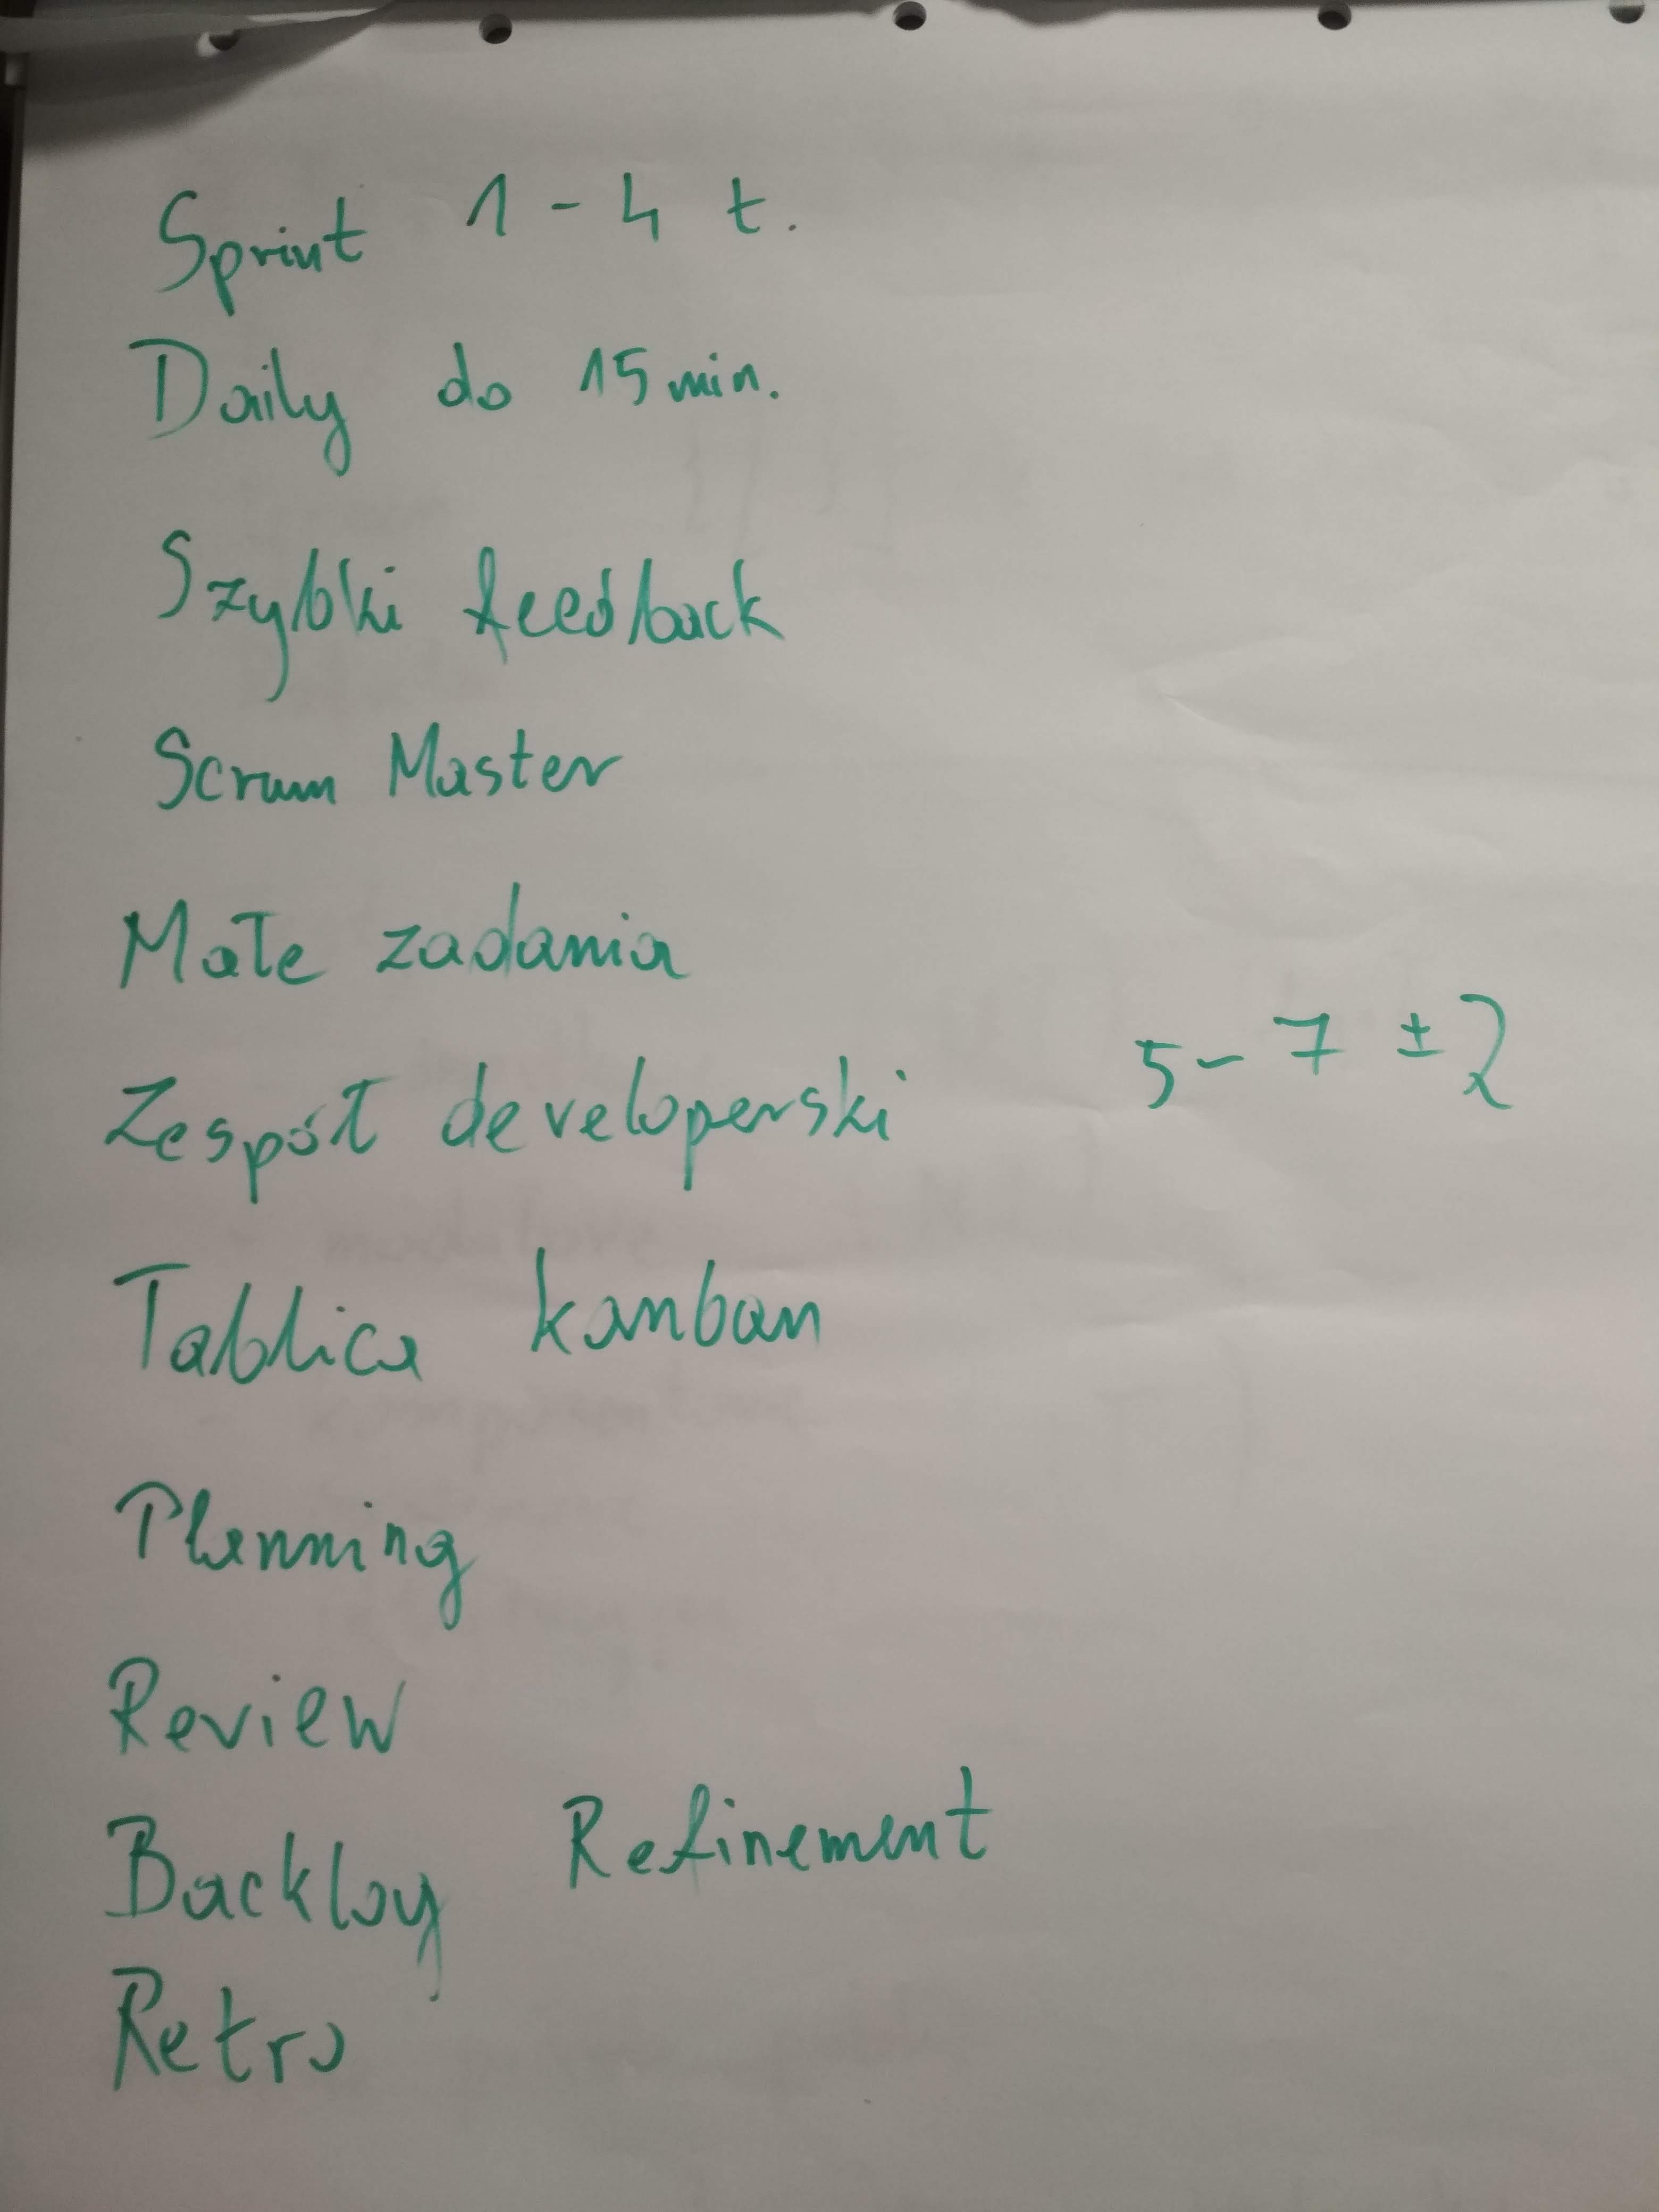 Sprint 1 - 4 t.
Daily do 15 min.
Szybki feedback
Scrum Master
Małe zadania
Zespół developerski 5 - 7 ± 2
Tablica kanban
Planning
Review
Backlog Refinement
Retro